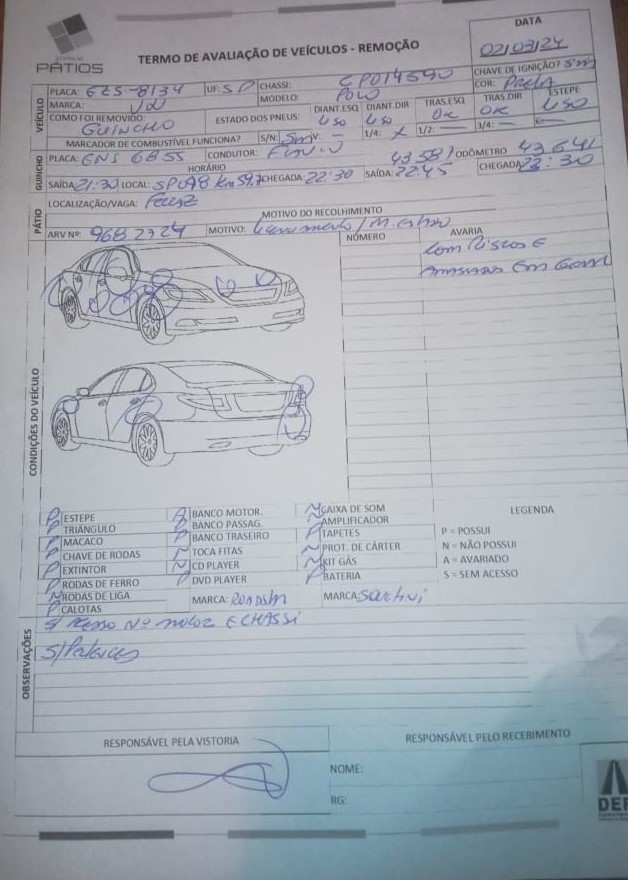 PÁTIOS
TERMO DE AVALIAÇÃO DE VEÍCULOS - REMOÇÃO
DATA
02/03/24
VEÍCULO
PLACA:
UF: SP
CHASSI: CP014590
CHAVE DE IGNIÇÃO? Sim
MARCA: VW
MODELO: POLO
COR: Prata
COMO FOI REMOVIDO: GUINCHO
ESTADO DOS PNEUS:
DIANT.ESQ uso
DIANT.DIR uso
TRAS.ESQ OK
TRAS.DIR OK
ESTEPE uso
MARCADOR DE COMBUSTÍVEL FUNCIONA?
S/N: Sim V: -
1/4: X
1/2: -
3/4: -
GUINCHO
PLACA: ENI 6B55
CONDUTOR:
43581
ODÔMETRO 43641
HORÁRIO
SAÍDA: 21:30 LOCAL: SP098 Km 59.7 CHEGADA: 22:30
SAÍDA: 22:45
CHEGADA: 23:30
PÁTIO
LOCALIZAÇÃO/VAGA:
MOTIVO DO RECOLHIMENTO
ARV Nº: 9682724
MOTIVO: Licenciamento /
CONDIÇÕES DO VEÍCULO
NÚMERO
AVARIA
Com Riscos E
Em Geral
P ESTEPE
P TRIÂNGULO
P MACACO
P CHAVE DE RODAS
P EXTINTOR
P RODAS DE FERRO
N RODAS DE LIGA
P CALOTAS
BANCO MOTOR.
P BANCO PASSAG.
P BANCO TRASEIRO
N TOCA FITAS
N CD PLAYER
P DVD PLAYER
MARCA:
N CAIXA DE SOM
N AMPLIFICADOR
P TAPETES
N PROT. DE CÁRTER
N KIT GÁS
P BATERIA
MARCA:
LEGENDA
P = POSSUI
N = NÃO POSSUI
A = AVARIADO
S = SEM ACESSO
OBSERVAÇÕES
S/ Acesso Nº motor E CHASSI
RESPONSÁVEL PELA VISTORIA
RESPONSÁVEL PELO RECEBIMENTO
NOME:
RG: